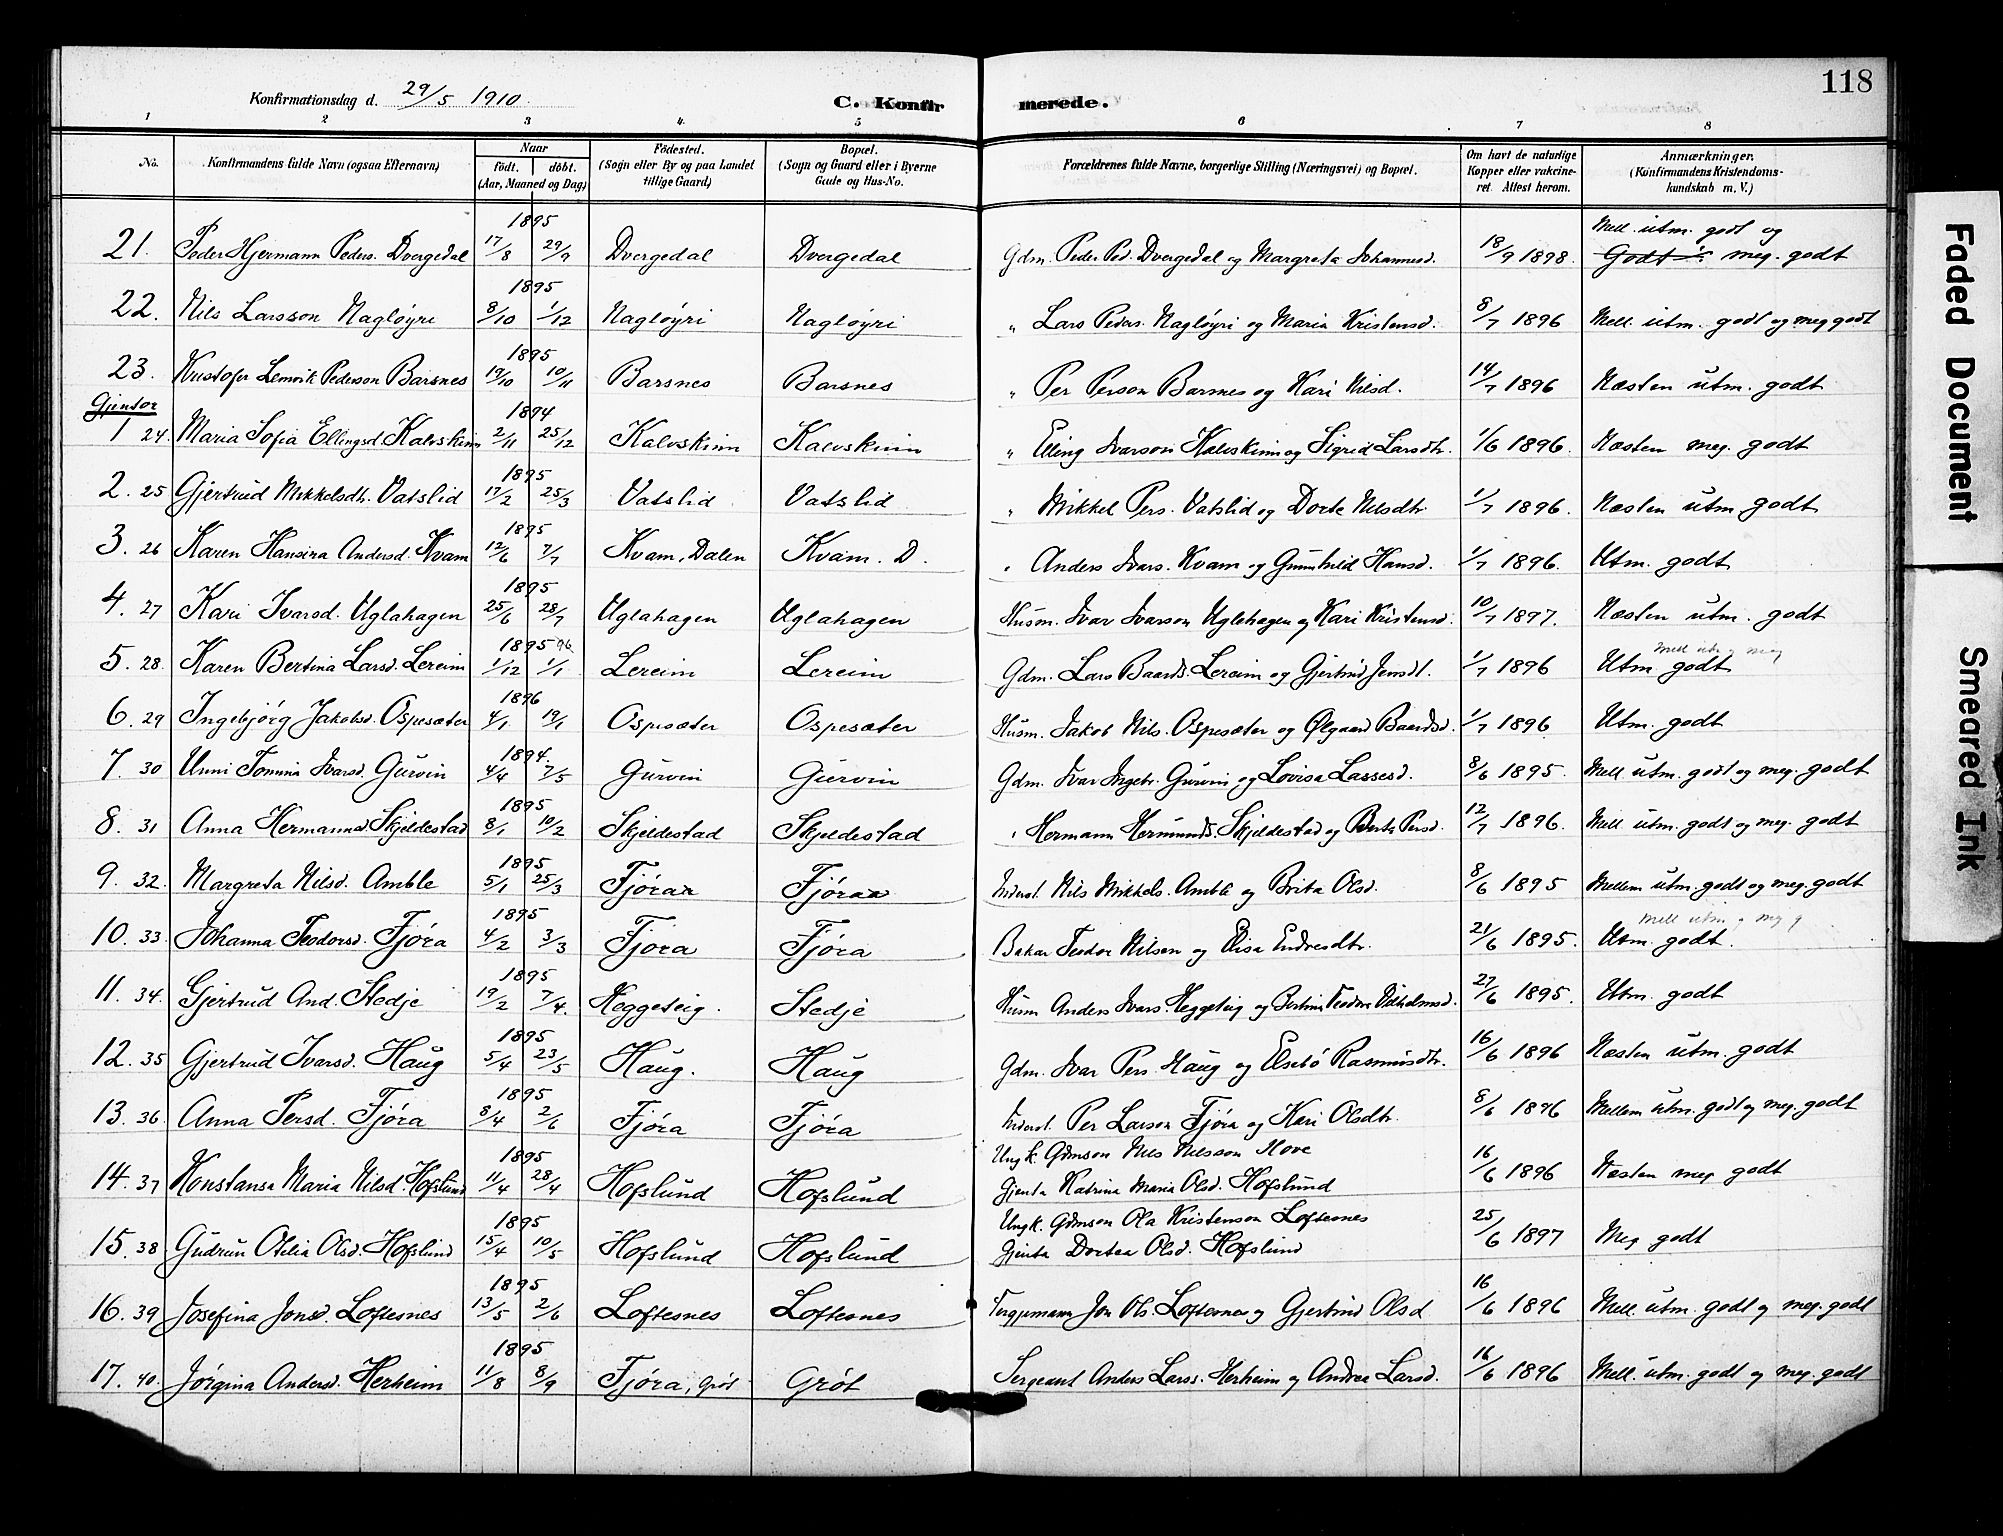 118
Konfirmationsdag d. 29/5 1910.
C. Konfirmerede.
1 2 3 4. 5 6 7 8
No. Konfirmandens fulde Navn (ogsaa Efternavn) Naar født. døbt. (Aar, Maaned og Dag) Fødested. (Sogn eller By og paa Landet tillige Gaard) Bopæl. (Sogn og Gaard eller i Byerne Gade og Hus-No. Forældrenes fulde Navne, borgerlige Stilling (Næringsvei) og Bopæl. Om havt de naturlige Kopper eller vakcineret. Attest herom. Anmærkninger. (Konfirmandens Kristendomskundskab m. V.)
1895 Mell. utm. godt og
21. Peder Hjermann Peders. Dvergedal 17/8 29/9 Dvergedal Dvergedal Gdm. Peder Ped. Dvergedal og Margreta Johannesd. 18/9 1898. Godt meg. godt
1895
22. Nils Larsson Nagløyri 8/10 1/12 Nagløyri Nagløyri " Lars Peders. Nagløyri og Maria Kristensd. 8/7 1896 Mell. utm. godt og meg godt
1895
23. Kristofer Lemvik Pederson Barsnes 19/10 10/11 Barsnes Barsnes " Per Person Barsnes og Kari Nilsd. 14/7 1896 Næsten utm. godt
Gjentor 1894
1 24. Maria Sofia Ellingsd. Kalvskinn 2/11 25/12 Kalvskinn Kalvskinn " Elling Ivarson Kalvskinn og Sigrid Larsdtr. 1/6 1896. Næsten meg. godt
1895
2. 25 Gjertrud Mikkelsdtr. Vatslid 17/2 25/3 Vatslid Vatslid " Mikkel Pers. Vatslid og Dorte Nilsdtr. 1/7 1896. Næsten utm godt
1895
3. 26 Karen Hansina Andersd. Kvam 12/6 7/7 Kvam, Dalen Kvam. D. " Anders Ivars. Kvam og Gunnhild Hansd. 1/7 1896. Utm. godt
1895
4. 27 Kari Ivarsd. Uglahagen 25/6 28/7 Uglahagen Uglahagen Husm. Ivar Ivarson Uglahagen og Kari Kristensd. 10/7 1897. Næsten utm. godt
1895 96. Mell utm og meg
5. 28. Karen Bertina Larsd. Lereim 1/12 1/1 Lereim Lereim Gdm. Lars Baards. Lereim og Gjertrud Jensdt. 1/7 1896 Utm. godt
1896
6. 29 Ingebjørg Jakobsd. Ospesæter 4/1 19/1 Ospesæter Ospesæter Husm. Jakob Nils. Ospesæter og Ølgaard Baardsd. 1/7 1896 Utm. godt
1894.
7. 30 Unni Tomina Ivarsd. Gurvin 4/4 7/5 Gurvin Gurvin Gdm. Ivar Ingebr. Gurvin og Lovisa Lassesd. 8/6 1895. Mell utm. godt og meg. godt
1895
8. 31 Anna Hermannsd. Skjeldestad 8/1 10/2 Skjeldestad Skjeldestad " Hermann Hermunds. Skjeldestad og Berta Persd. 12/7 1896. Mell utm. godt og meg. godt
1895
9. 32. Margreta Nilsd. Amble 5/1 25/3 Fjøraa Fjøraa Inderst. Nils Mikkels. Amble og Brita Olsd. 8/6 1895 Mellem utm. godt og meg. godt
1895 Mell utm og meg g
10. 33. Johanna Teodorsd. Fjøra 4/2 3/3 Fjøra Fjøra Bakar Teodor Nilsen og Elisa Endresdtr. 21/6 1895. Utm. godt.
1895
11. 34. Gjertrud And. Stedje 19/2 7/4. Heggeteig. Stedje Husm Anders Ivars. Heggeteig og Bertina Teodora Vilhelmsd. 27/6 1895. Utm. godt
1895
12. 35 Gjertrud Ivarsd. Haug 5/4 23/5 Haug. Haug Gdm. Ivar Pers. Haug og Elsebø Rasmusdtr. 16/6 1896 Næsten utm. godt
1895
13. 36. Anna Persd. Fjøra 8/4 2/6 Fjøra Fjøra Inderst. Per Larson Fjøra og Kari Olsdtr. 8/6 1896 Mellem utm. godt og meg. godt
1895 Ungk. Gdmson Nils Nilsson Hove
14. 37 Konstansa Maria Nilsd. Hofslund 11/4 28/4 Hofslund Hofslund Gjenta Katrina Maria Olsd. Hofslund 16/6 1896 Næsten meg godt
1895 Ungk. Gdmson Ola Kristenson Loftesnes
15. 38 Gudrun Otelia Olsd. Hofslund 15/4 10/5 Hofslund Hofslund Gjenta Dortea Olsd. Hofslund 25/6 1897 Meg godt
1895
16. 39 Josefina Jonsd. Loftesnes 13/5 2/6 Loftesnes Loftesnes Jon Ols. Loftesnes og Gjertrud Olsd 16/6 1896 Mell. utm. godt og meg. godt
1895
17. 40. Jørgina Andersd. Herheim 11/8 8/9 Fjøra, Grøt Grøt Sergeant Anders Larss. Herheim og Andrea Larsd. 16/6 1896 Mell. utm. godt og meg. godt
Faded Document
Smeared Ink